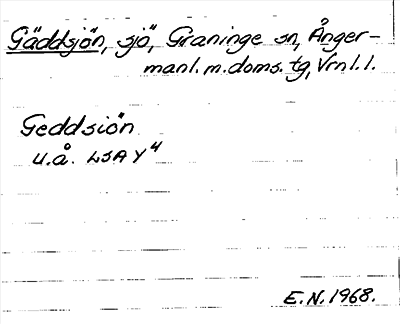 Gäddsjön, sjö, Graninge sn, Ånger-
manl. m. doms. tg, Vrnl. l.
Geddsiön
u.å. LSA Y⁴
E.N. 1968.